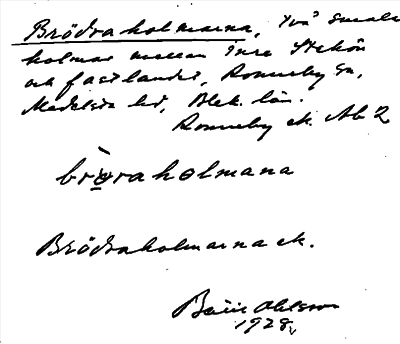 Brödraholmarna, två smala
holmar mellan Inre Stekön
och fastlandet, Ronneby sn,
Medelsta hd, Blek. län.
Ronneby ek. Ab 2
brö̀raholmana
Brödraholmarna ek.
Ohlsson
1928